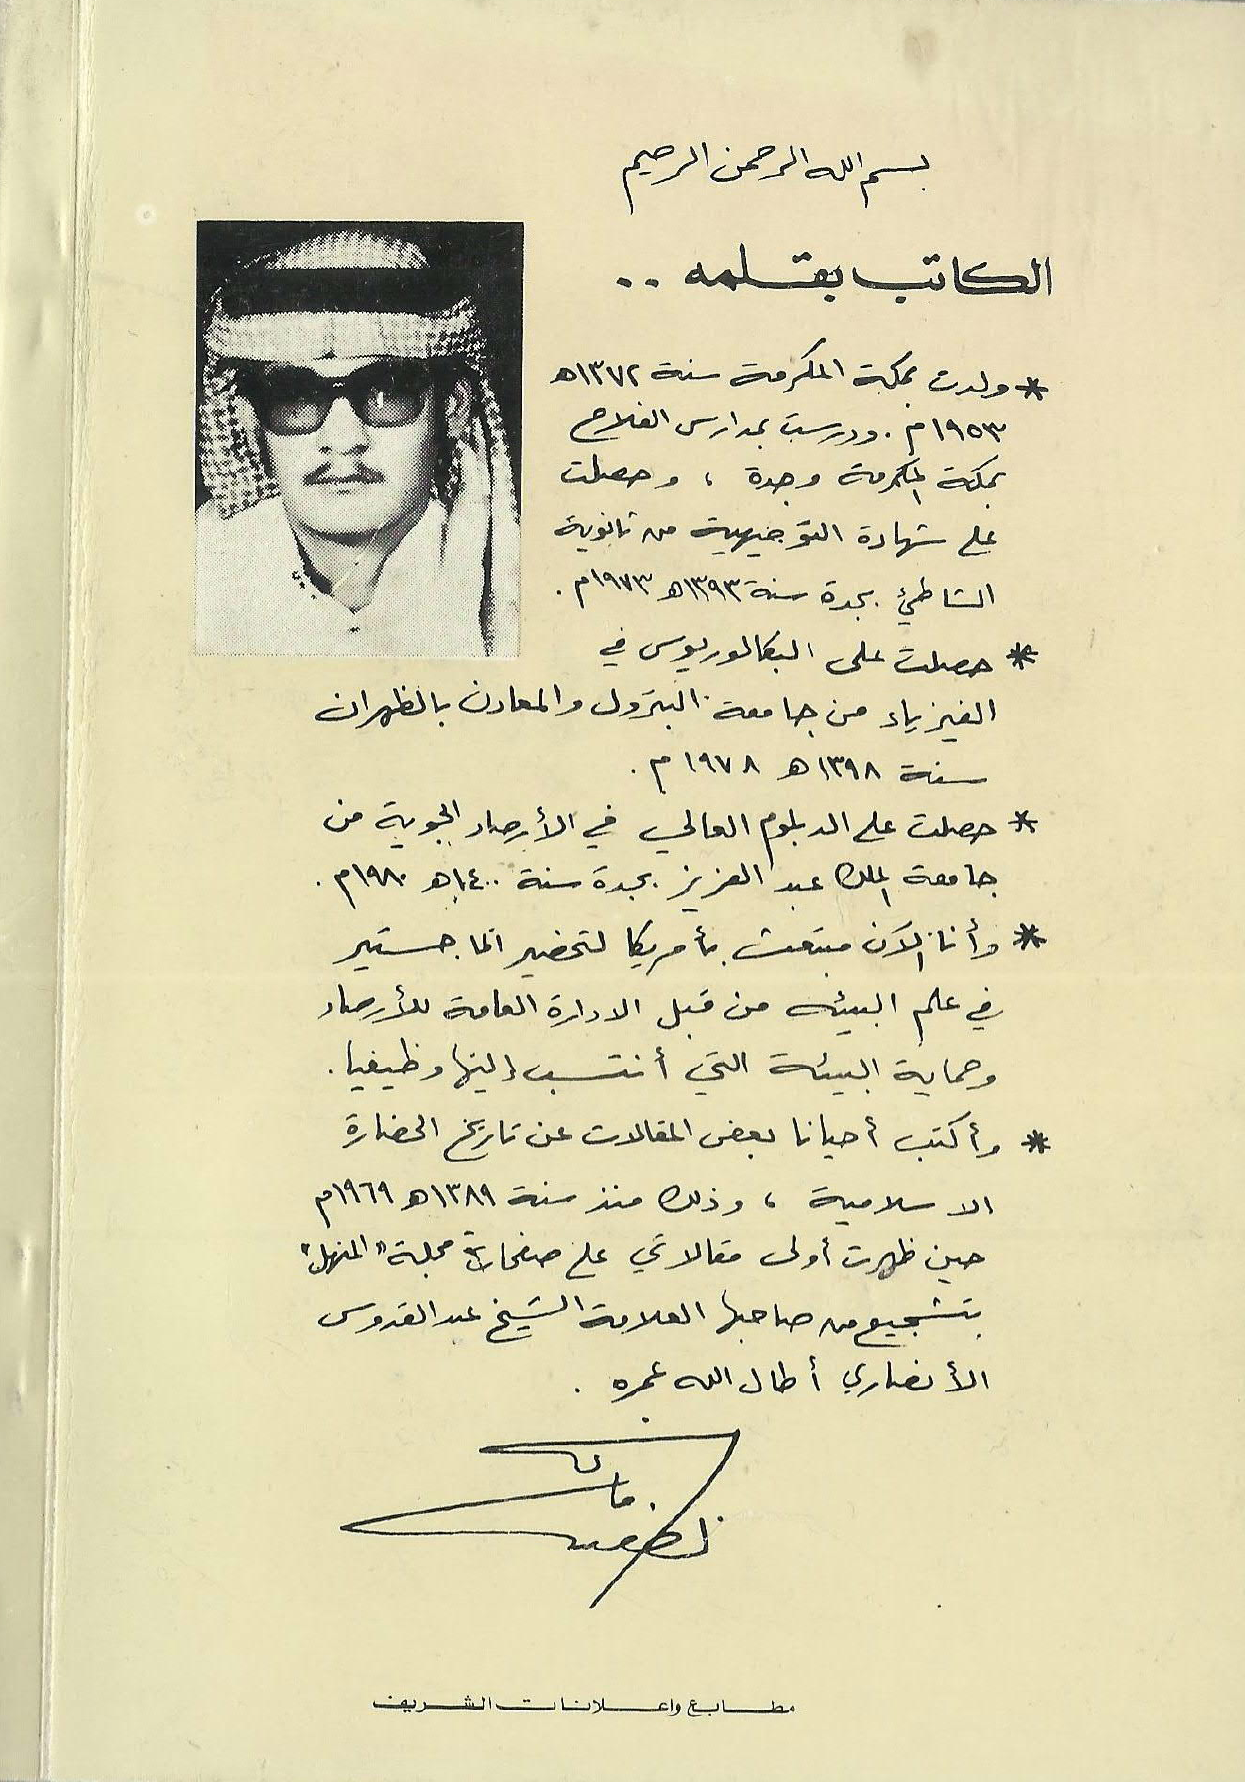 بسم الله الرحمن الرحيم
الكاتب بقلمه ..
* ولدت بمكة المكرمة سنة ١٣٧٢هـ
١٩٥٣م . ودرست بمدارس الفلاح
بمكة المكرمة وجدة ، وحصلت
على شهادة التوجيهية من ثانوية
الشاطئ بجدة سنة ١٣٩٣هـ ١٩٧٣م .
* حصلت على البكالوريوس في
الفيزياء من جامعة البترول والمعادن بالظهران
سنة ١٣٩٨هـ ١٩٧٨م .
* حصلت على الدبلوم العالي في الأرصاد الجوية من
جامعة الملك عبد العزيز بجدة سنة ١٤٠٠هـ ١٩٨٠م .
* وأنا الآن مبتعث بأمريكا لتحضير الماجستير
في علم البيئه من قبل الادارة العامة للأرصاد
وحماية البيئة التي أنتسب إليها وظيفيا .
* وأكتب أحيانا بعض المقالات عن تاريخ الحضارة
الاسلامية ، وذلك منذ سنة ١٣٨٩هـ ١٩٦٩م
حين ظهرت أولى مقالاتي على صفحات مجلة "المنهل"
بتشجيع من صاحبها العلامة الشيخ عبد القدوس
الأنصاري أطال الله عمره .
مطابع واعلانات الشريف